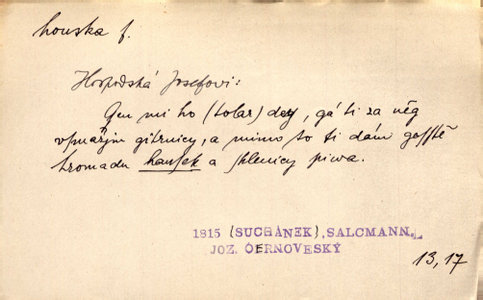 houska f.
Hospodská Josefovi:
Gen mi ho (tolar) dey, gá ti za něg
vsmažjm gitrnicy, a mimo to ti dám gesstě
hromadu hausek a sklenicy piwa.
1815 (SUCHÁNEK), SALCMANN,
JOZ. ČERNOVESKÝ
13,17